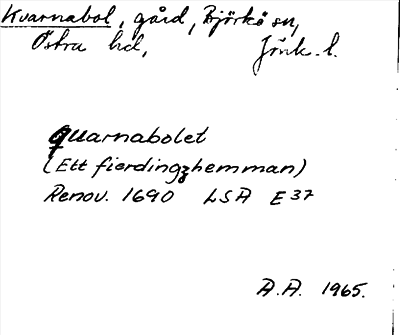 Kvarnabol, gård, Björkö sn,
Östra hd, Jönk. l.
Quarnabolet
(Ett fierdingzhemman)
Renov. 1690 LSA E 37
A.A. 1965.